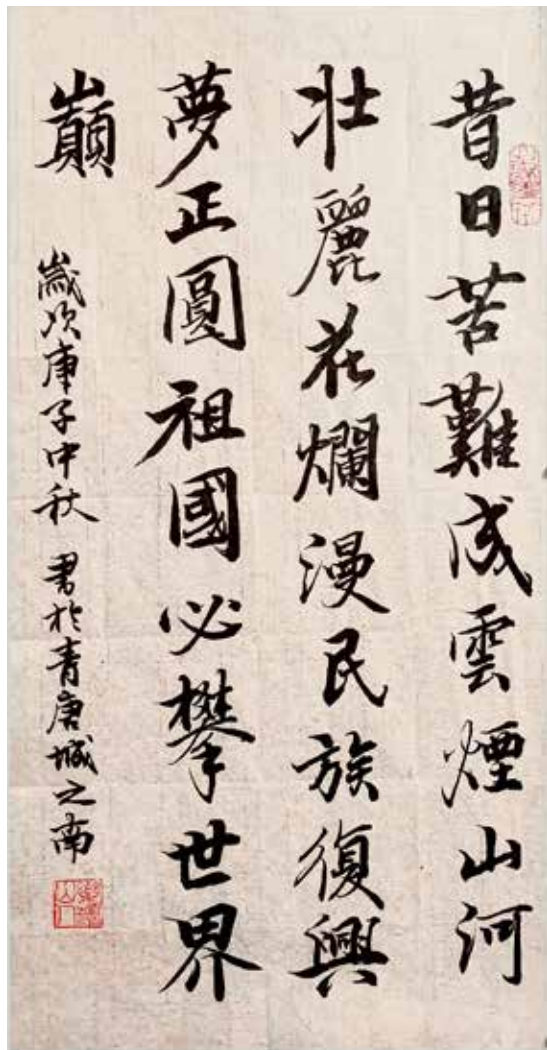 昔日苦難成雲煙山河
壯麗花爛漫民族復興
夢正圓祖國必攀世界
巔
歲次庚子中秋 書於青唐城之南